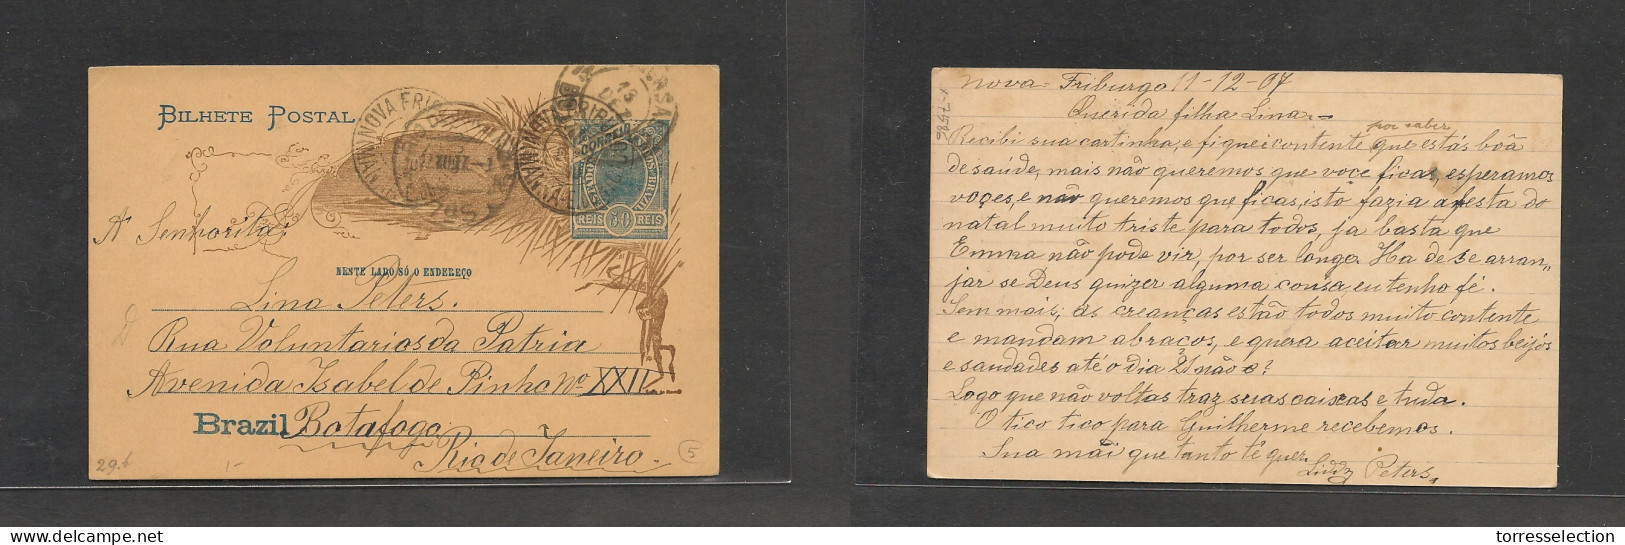 BILHETE POSTAL
NOVA FRIBURGO
13
DEZ
CORREIO
ESTADOS U. DO BRAZIL
REIS 50 REIS
A Senhorita:
NESTE LADO SÓ O ENDEREÇO
Lina Peters.
Rua Voluntarios da Patria
Avenida Isabel de Pinho No XXII
Brazil Botafogo
Rio de Janeiro.
29.b
1-
5
Nova=Friburgo 11-12-07
Querida filha Lina.=
por saber
Recibi sua cartinha, e fiquei contente que estás bôa
de saúde, mais não queremos que voce ficas, esperamos
voçes, e não queremos que ficas, isto fazia a festa do
natal muito triste para todos, ja basta que
Emma não pode vir, por ser longe. Ha de se arran„
jar se Deus quizer alguma cousa, eu tenho fé.
Sem mais, as creanças estão todos muito contente
e mandam abraços, e quera aceitar muitos beijos
e saudades até o dia 21 não é?
Logo que não voltas traz suas caixas e tuda.
O tico tico para Guilherme recebemos.
Sua mãi que tanto tê quer.
Liddy Peters.
torresselection